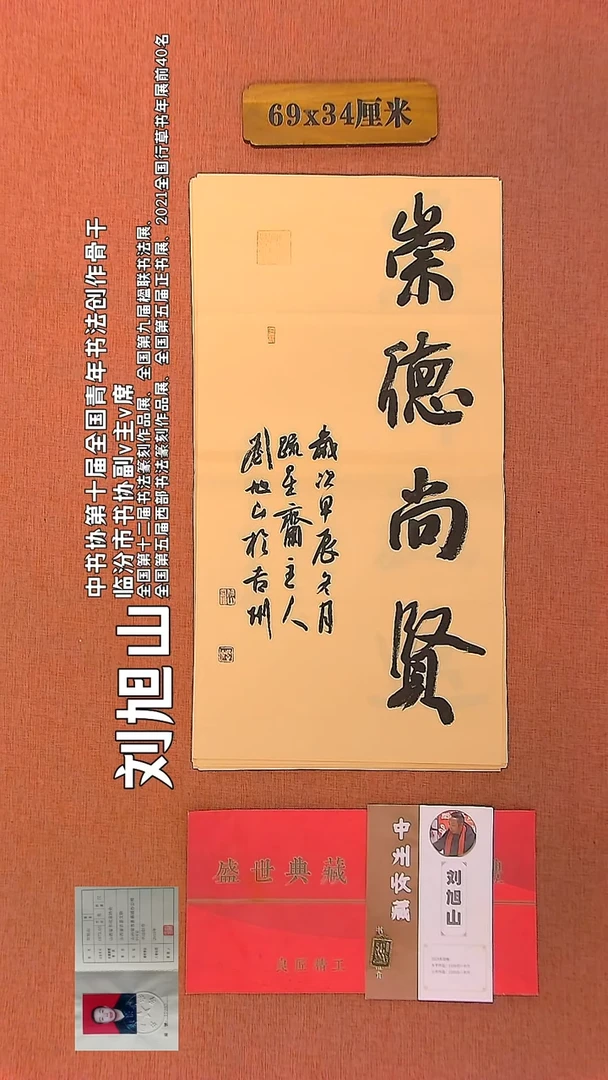 69x34厘米
崇德尚賢
歲次甲辰冬月
疏星齋主人
劉旭山於吉州
刘旭山
中书协第十届全国青年书法创作骨干
临汾市书协副v主v席
全国第十二届书法篆刻作品展、全国第九届楹联书法展、
全国第五届西部书法篆刻作品展、全国第五届正书展、2021全国行草书年展前40名
盛世典藏
中州收藏
刘旭山